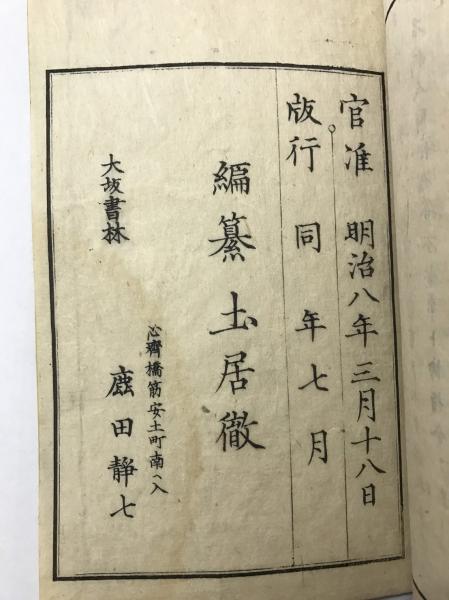 官准 明治八年三月十八日
版行 同年七月
編纂 圡居徹
大坂書林
心齋橋筋安土町南ヘ入
鹿田靜七